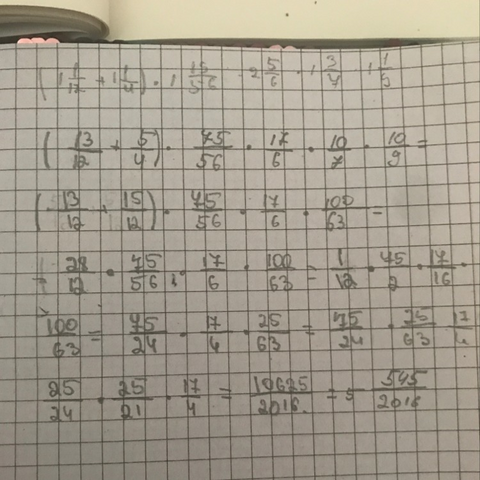 (1 1/12 + 1 1/4) · 1 19/56 · 2 5/6 · 1 3/7 · 1 1/9
(13/12 + 5/4) · 75/56 · 17/6 · 10/7 · 10/9 =
(13/12 + 15/12) · 75/56 · 17/6 · 100/63 =
= 28/12 · 75/56 · 17/6 · 100/63 = 1/12 · 75/2 · 17/16 ·
100/63 = 75/24 · 17/4 · 25/63 = 75/24 · 25/63 · 17/4
25/24 · 25/21 · 17/4 = 10625/2016 = 5 545/2016